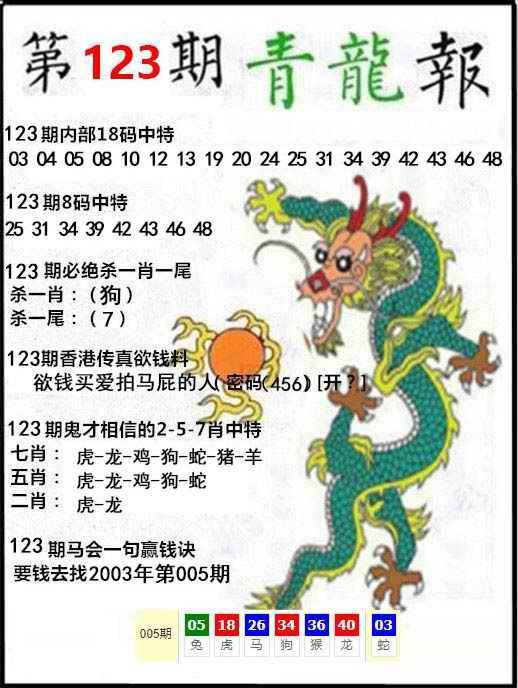 第123期青龍報
123期内部18码中特
03 04 05 08 10 12 13 19 20 24 25 31 34 39 42 43 46 48
123期8码中特
25 31 34 39 42 43 46 48
123 期必绝杀一肖一尾
杀一肖：（狗）
杀一尾：（7）
123期香港传真欲钱料
欲钱买爱拍马屁的人( 密码(456) [开？]
123期鬼才相信的2-5-7肖中特
七肖： 虎-龙-鸡-狗-蛇-猪-羊
五肖： 虎-龙-鸡-狗-蛇
二肖： 虎-龙
123 期马会一句赢钱诀
要钱去找2003年第005期
005期 05 18 26 34 36 40 03
兔 虎 马 狗 猴 龙 蛇